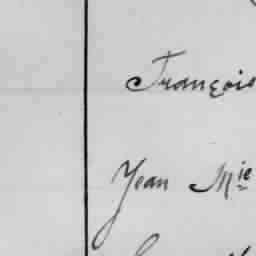 François
Jean Mie